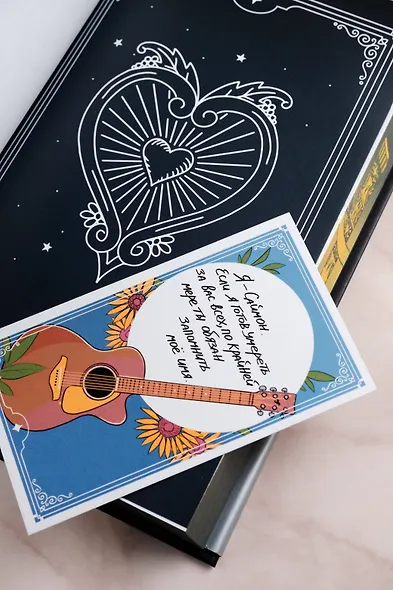 Я - Саймон.
Если я готов умереть
за вас всех, по крайней
мере ты обязан
запомнить
моё имя.